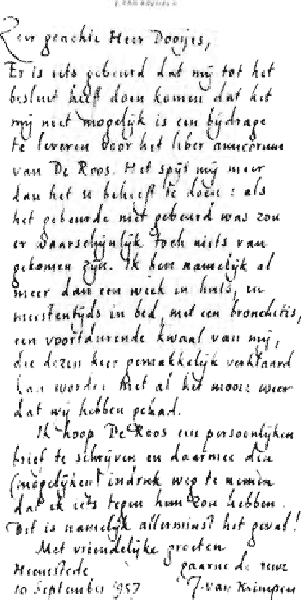 Zeer geachte Heer Dooijes,
Er is iets gebeurd dat mij tot het
besluit heeft doen komen dat het
mij niet mogelijk is een bijdrage
te leveren voor het liber amicorum
van De Roos. Het spijt mij meer
dan het u behoeft te doen: als
het gebeurde niet gebeurd was zou
er waarschijnlijk toch niets van
gekomen zijn. Ik ben namelijk al
meer dan een week in huis, en
meestentijds in bed, met een bronchitis,
een voortdurende kwaal van mij,
die dezen keer gemakkelijk verklaard
kan worden met al het mooie weer
dat wij hebben gehad.
Ik hoop De Roos een persoonlijken
brief te schrijven en daarmee den
(mogelijken) indruk weg te nemen
dat ik iets tegen hem zou hebben.
Dit is namelijk allerminst het geval!
Met vriendelijke groeten
Heemstede gaarne de uwe
10 September 1957 J. van Krimpen